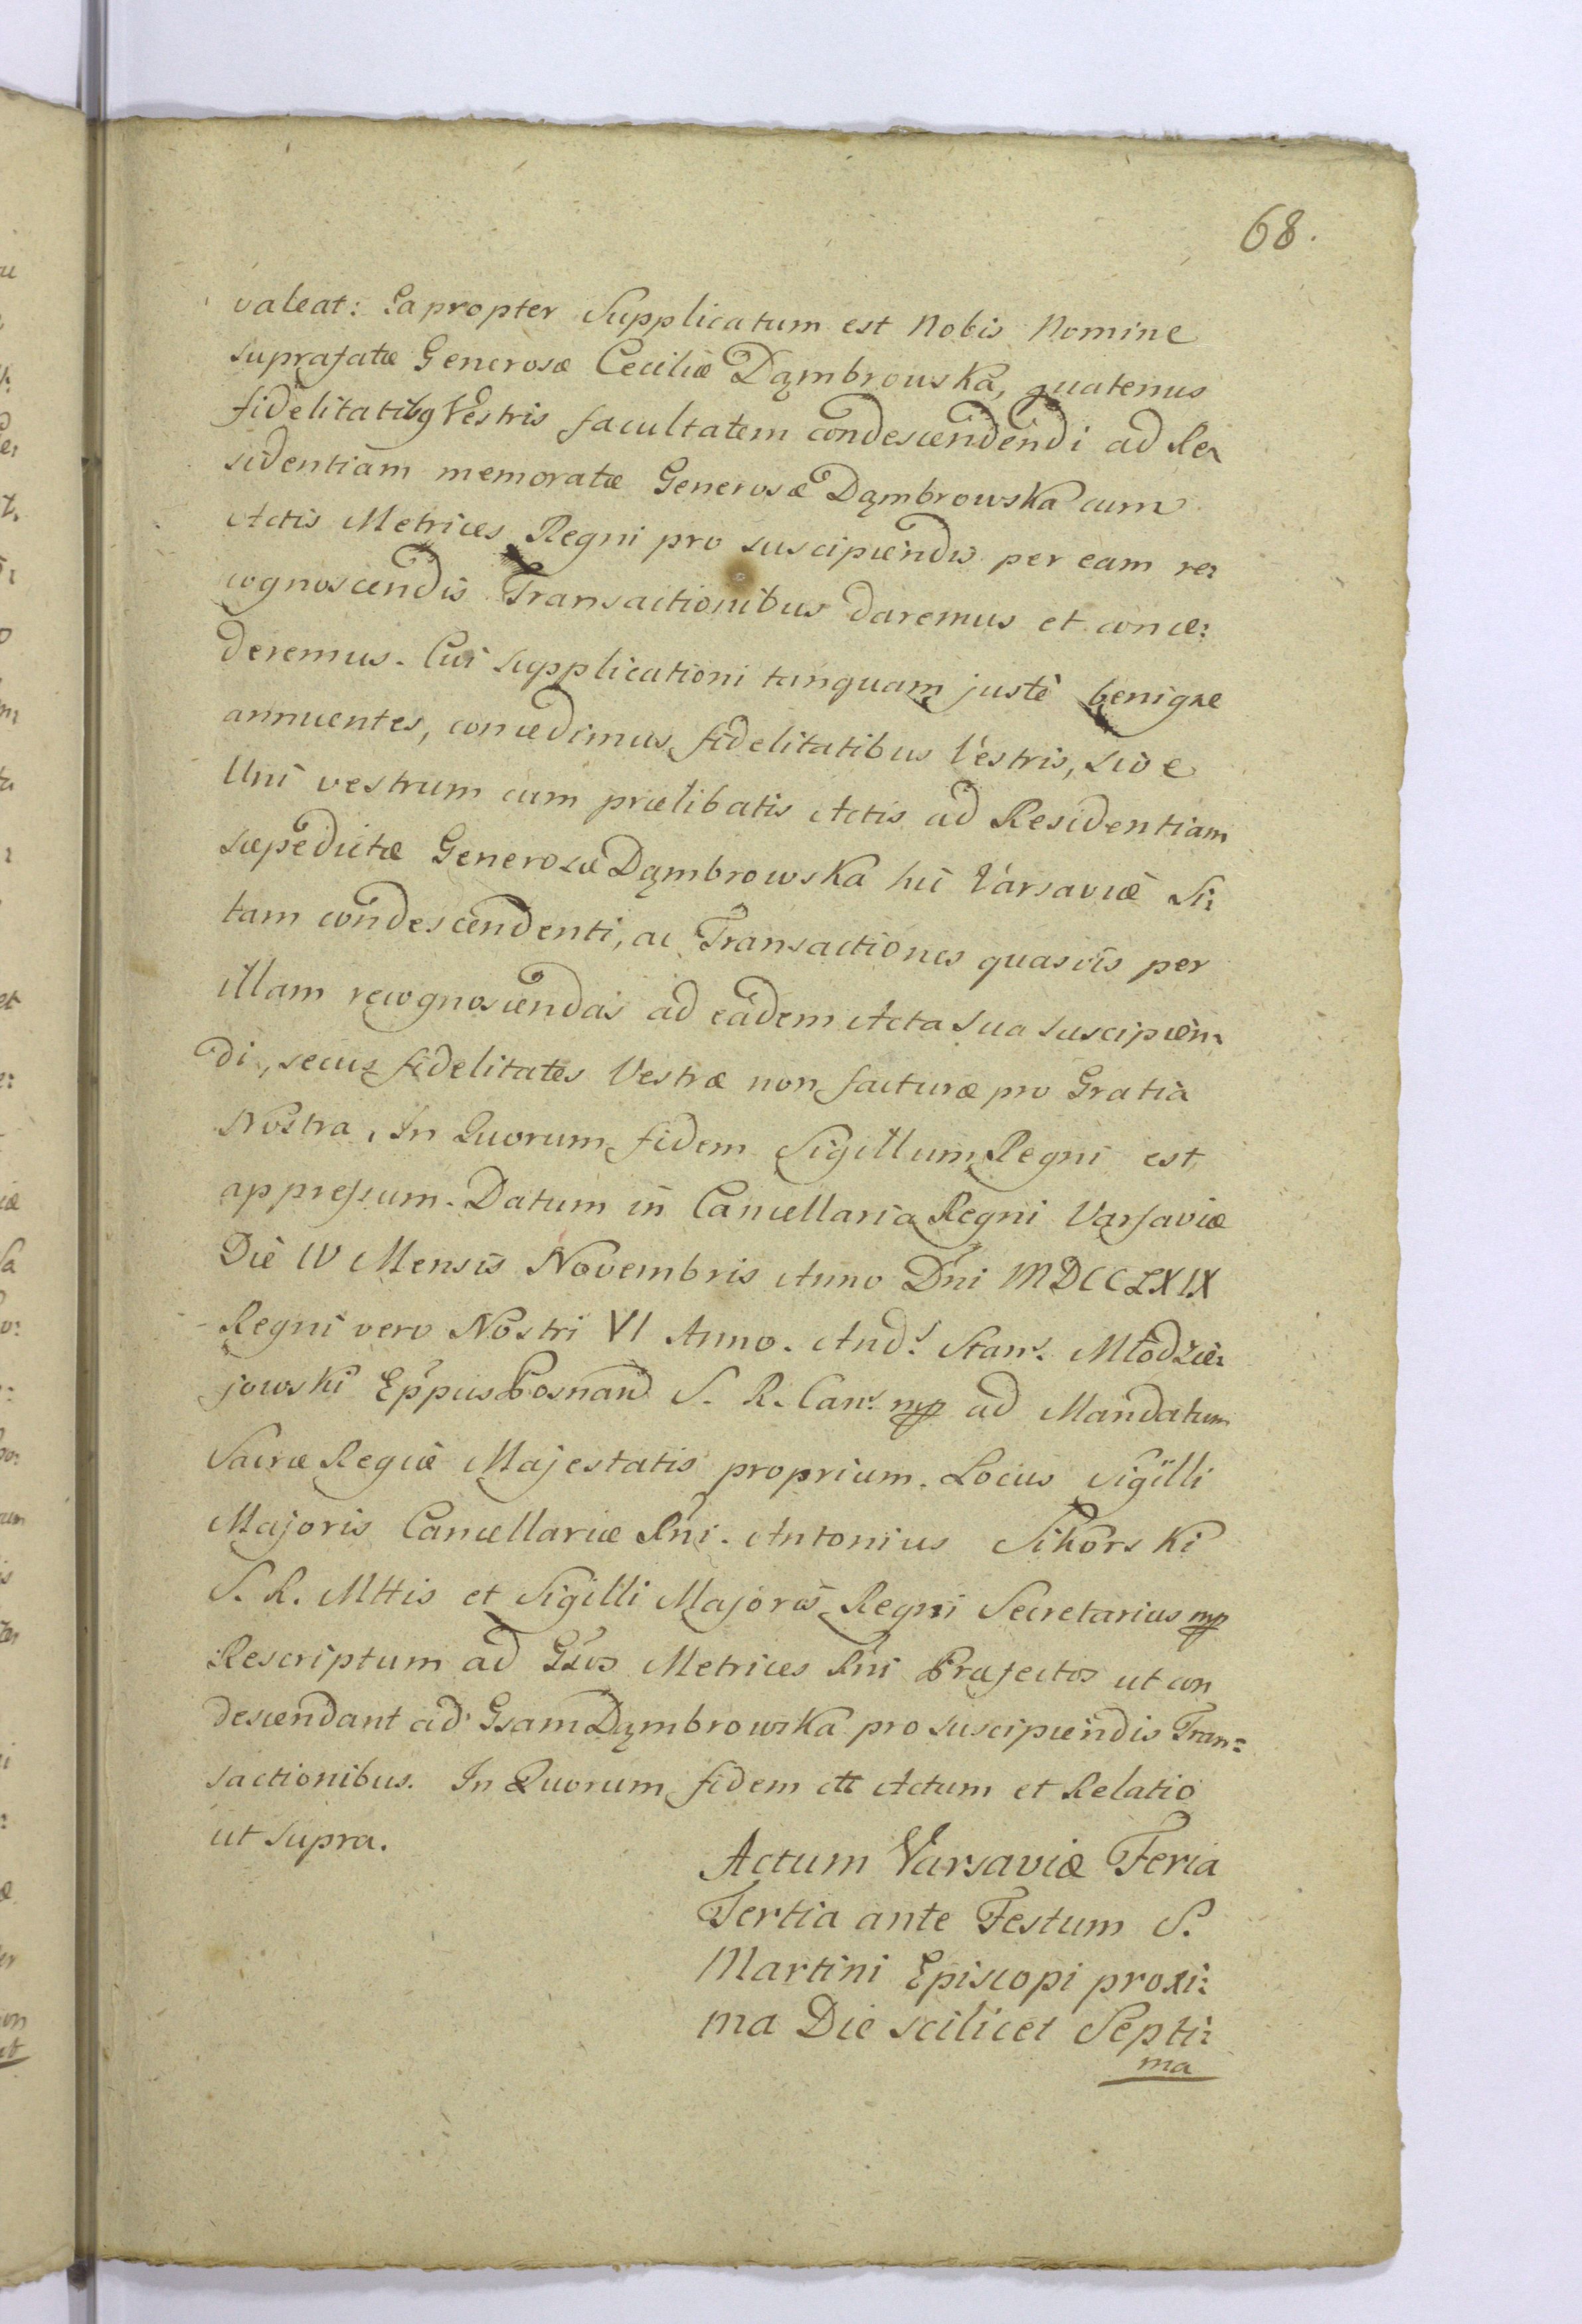 68.
valeat: Eapropter Supplicatum est Nobis Nomine
suprafatæ Generosæ Ceciliæ Dąmbrowska, quatenus
fidelitatibq Vestris facultatem condescendendi ad Re:
sidentiam memoratæ Generosæ Dąmbrowska cum
Actis Metrices Regni pro suscipiendis per eam re:
cognoscendis Transactionibus daremus et conce:
deremus. Cui supplicationi tanquam justè benigne
annuentes, concedimus fidelitatibus Vestris, sive
Uni vestrum cum prælibatis Actis ad Residentiam
sæpedictæ Generosæ Dąmbrowska hic Varsaviæ Si:
tam condescendenti, ac Transactiones quasvis per
illam recognoscendas ad eadem Acta sua suscipien:
di, secus fidelitates Vestræ non facturæ pro Gratia
Nostra, In Quorum fidem Sigillum Regni est
appressum. Datum in Cancellaria Regni Varsaviæ
Die IV Mensis Novembris Anno Dni MDCCLXIX
Regni vero Nostri VI Anno. Andˢ Stanˢ. Młodzie:
jowski Eppus Posnan S. R. Canˢ. mp ad Mandatum
Sacræ Regiæ Majestatis proprium. Locus Sigilli
Majoris Cancellariæ Rni. Antonius Sikorski
S. R. Mttis et Sigilli Majoris Regni Secretarius mp
Rescriptum ad Gsos Metrices Rni Præfectos ut con
descendant ad Gsam Dąmbrowska pro suscipiendis Tran=
sactionibus. In Quorum fidem Actum et Relatio
ut supra.
Actum Varsaviæ Feria
Tertia ante Festum S.
Martini Episcopi proxi:
ma Die scilicet Septi:
ma